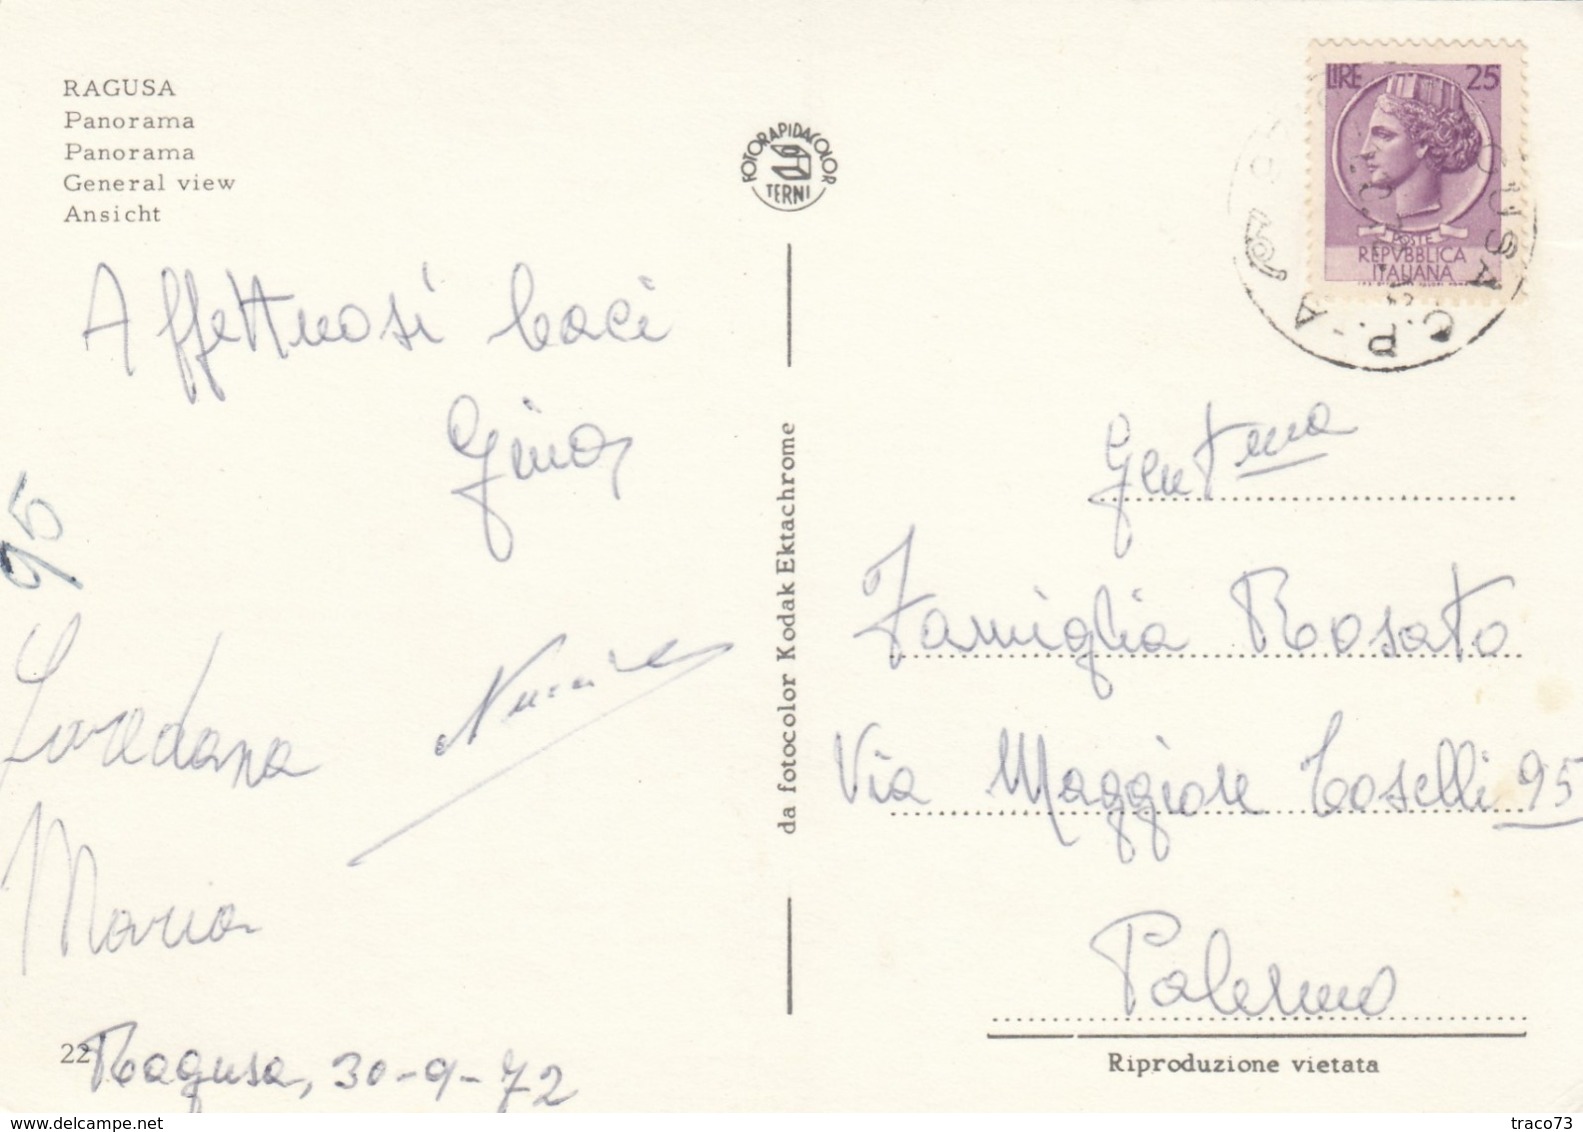 RAGUSA
Panorama
Panorama
General view
Ansicht
FOTORAPIDACOLOR
TERNI
LIRE 25
POSTE
REPVBBLICA
ITALIANA
Affettuosi baci
Gina
95
Loredana
Maria
22
Ragusa, 30-9-72
da fotocolor Kodak Ektachrome
Gent ma
Famiglia Rosato
Via Maggiore Toselli 95
Palermo
Riproduzione vietata
traco73